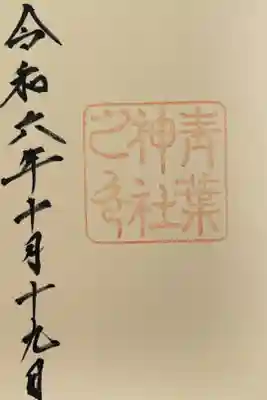 青葉
神社
之印
令和六年十月十九日